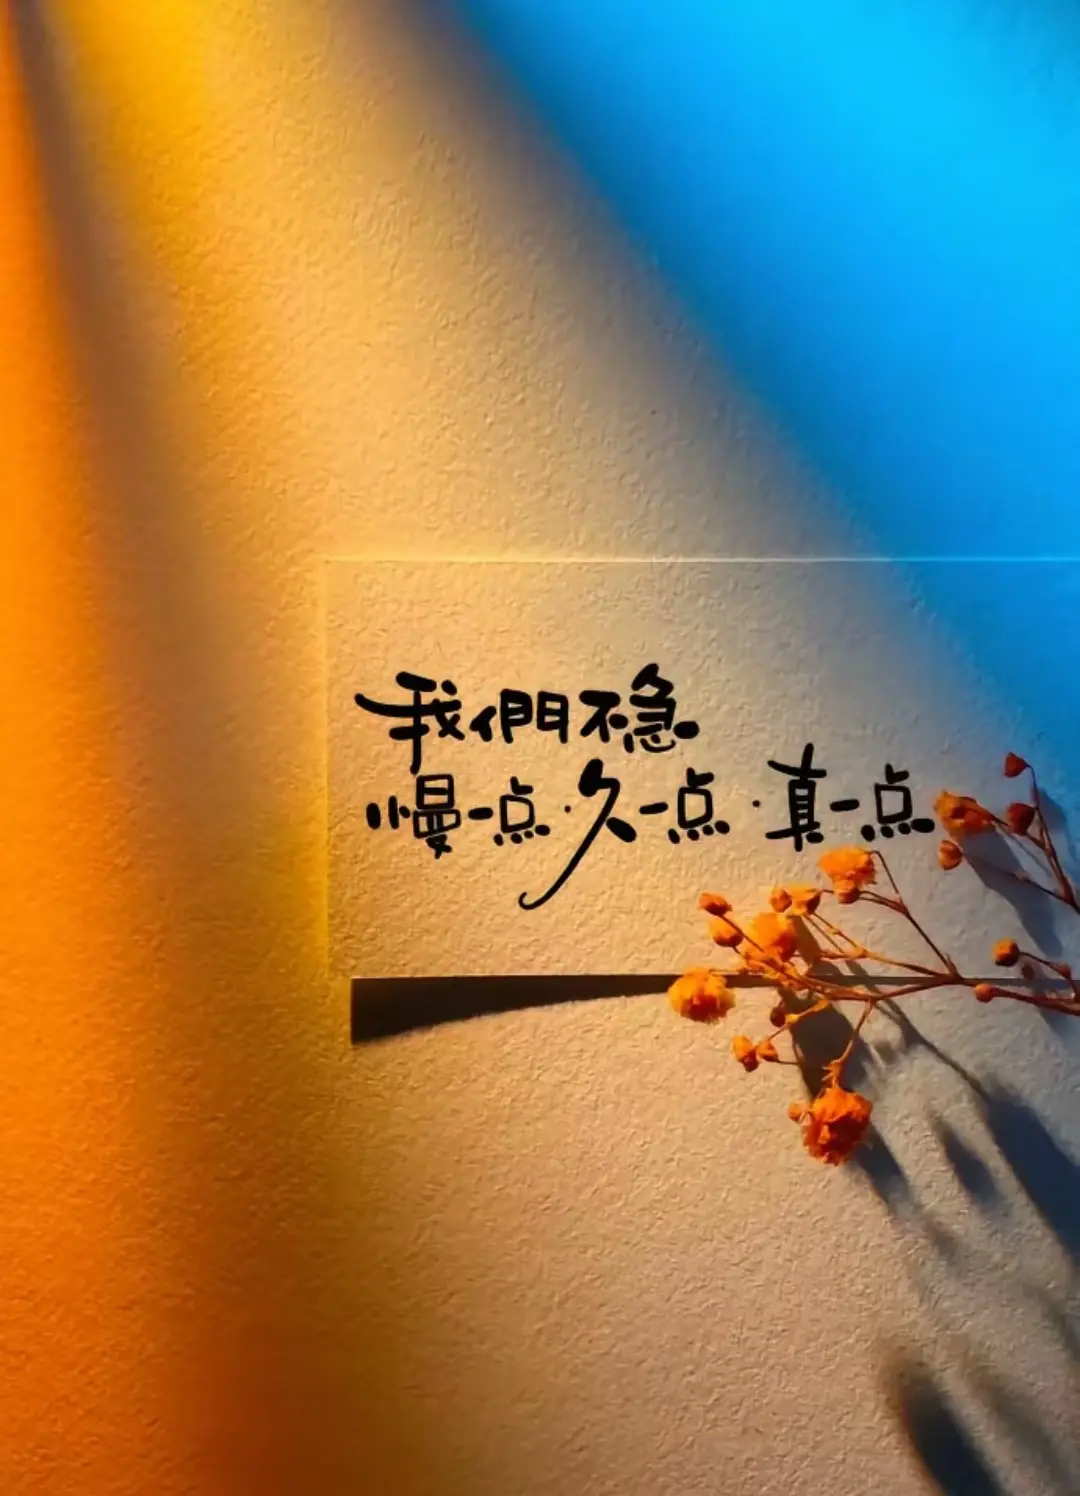 我們不急
慢一点·久一点·真一点